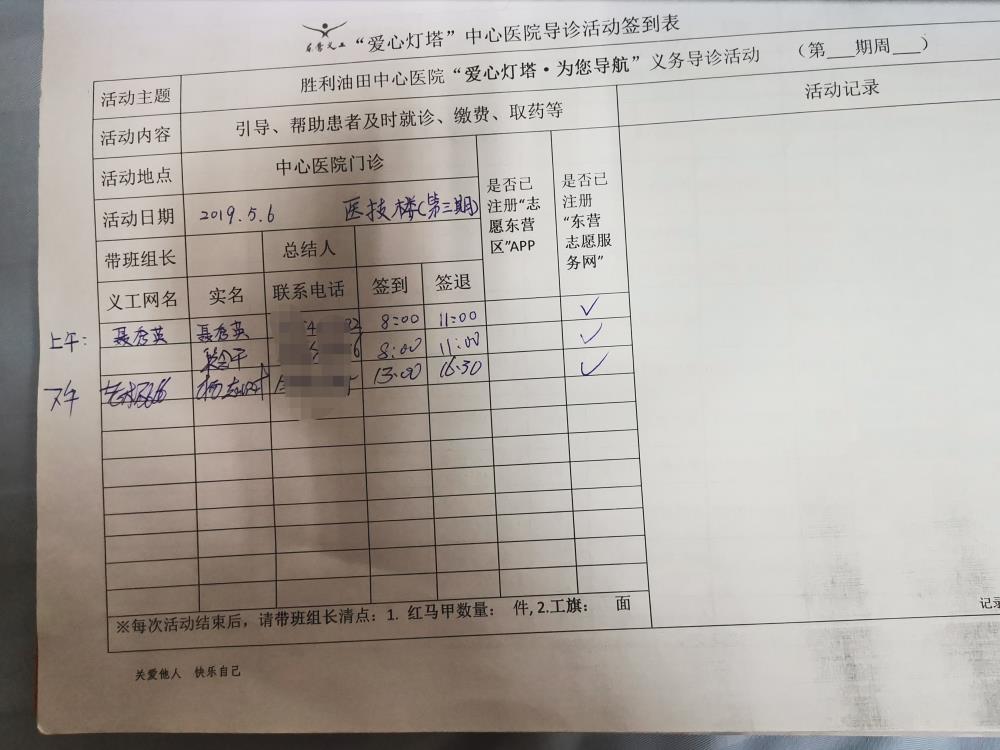 东营义工 “爱心灯塔”中心医院导诊活动签到表
活动主题 胜利油田中心医院“爱心灯塔·为您导航”义务导诊活动 （第___期周___）
活动内容 引导、帮助患者及时就诊、缴费、取药等 活动记录
活动地点 中心医院门诊
活动日期 2019.5.6 医技楼(第三期)
带班组长 总结人
是否已注册“志愿东营区”APP
是否已注册“东营志愿服务网”
义工网名 实名 联系电话 签到 签退
上午: 聂秀英 聂秀英 8:00 11:00 ✓
8:00 11:00 ✓
下午 13:00 16:30 ✓
※每次活动结束后，请带班组长清点：1. 红马甲数量： 件, 2.工旗： 面
记录
关爱他人 快乐自己